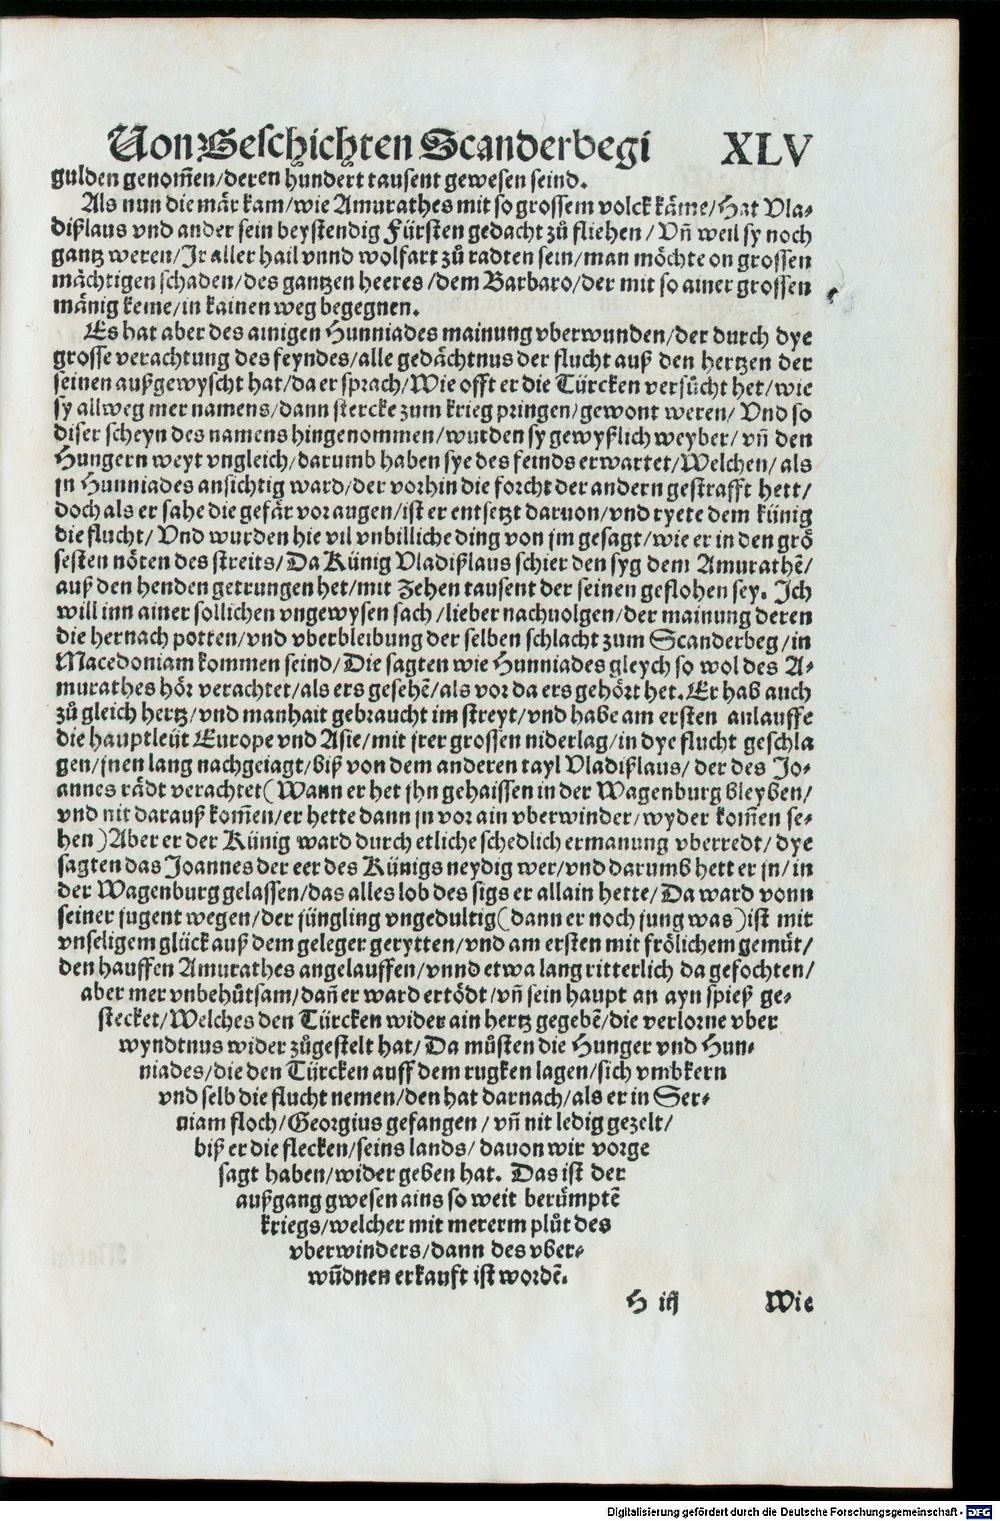 Von Geschichten Scanderbegi XLV
gulden genom̃en/deren hundert tausent gewesen seind.
Als nun die mår kam/wie Amurathes mit so grossem volck kåme/Hat Vla⸗
dißlaus vnd ander sein beystendig Fürsten gedacht zů fliehen/Vn̄ weil sy noch
gantz weren/Jr aller hail vnnd wolfart zů radten sein/man möchte on grossen
måchtigen schaden/des gantzen heeres/dem Barbaro/der mit so ainer grossen
månig keme/in kainen weg begegnen.
Es hat aber des ainigen Hunniades mainung vberwunden/der durch dye
grosse verachtung des feyndes/alle gedåchtnus der flucht auß den hertzen der
seinen außgewyscht hat/da er sprach/Wie offt er die Türcken versůcht het/wie
sy allweg mer namens/dann stercke zum krieg pringen/gewont weren/Vnd so
diser scheyn des namens hingenommen/wurden sy gewyßlich weyber/vn̄ den
Hungern weyt vngleich/darumb haben sye des feinds erwartet/Welchen/als
jn Hunniades ansichtig ward/der vorhin die forcht der andern gestrafft hett/
doch als er sahe die gefår vor augen/ist er entsetzt daruon/vnd ryete dem künig
die flucht/Vnd wurden hie vil vnbilliche ding von jm gesagt/wie er in den grö
sesten nöten des streits/Da Künig Vladißlaus schier den syg dem Amurathē/
auß den henden getrungen het/mit zehen tausent der seinen geflohen sey. Jch
will inn ainer sollichen vngewysen sach/lieber nachuolgen/der mainung deren
die hernach potten/vnd vberbleibung der selben schlacht zum Scanderbeg/in
Macedoniam kommen seind/Die sagten wie Hunniades gleych so wol des A⸗
murathes hör verachtet/als ers gesehē/als vor da ers gehört het. Er hab auch
zů gleich hertz/vnd manhait gebraucht im streyt/vnd habe am ersten anlauffe
die hauptleüt Europe vnd Asie/mit jrer grossen niderlag/in dye flucht geschla
gen/jnen lang nachgeiagt/biß von dem anderen tayl Vladißlaus/der des Jo⸗
annes rådt verachtet(Wann er het jhn gehaissen in der Wagenburg bleyben/
vnd nit darauß kom̃en/er hette dann jn vor ain vberwinder/wyder kom̃en se⸗
hen)Aber er der Künig ward durch etliche schedlich ermanung vberredt/dye
sagten das Joannes der eer des Künigs neydig wer/vnd darumb hett er jn/in
der Wagenburg gelassen/das alles lob des sigs er allain hette/Da ward vonn
seiner jugent wegen/der jüngling vngedultig(dann er noch jung was)ist mit
vnseligem glück auß dem geleger gerytten/vnd am ersten mit frölichem gemüt/
den hauffen Amurathes angelauffen/vnnd etwa lang ritterlich da gefochten/
aber mer vnbehůtsam/dan̄ er ward ertödt/vn̄ sein haupt an ayn spieß ge⸗
stecket/Welches den Türcken wider ain hertz gegebē/die verlorne vber
wyndtnus wider zůgestelt hat/Da můsten die Hunger vnd Hun⸗
niades/die den Türcken auff dem rugken lagen/sich vmbkern
vnd selb die flucht nemen/den hat darnach/als er in Ser⸗
niam floch/Georgius gefangen/vn̄ nit ledig gezelt/
biß er die flecken/seins lands/dauon wir vorge
sagt haben/wider geben hat. Das ist der
außgang gwesen ains so weit berümptē
kriegs/welcher mit mererm plůt des
vberwinders/dann des vber⸗
wūdnen erkauft ist wordē.
H iij Wie
Digitalisierung gefördert durch die Deutsche Forschungsgemeinschaft - DFG